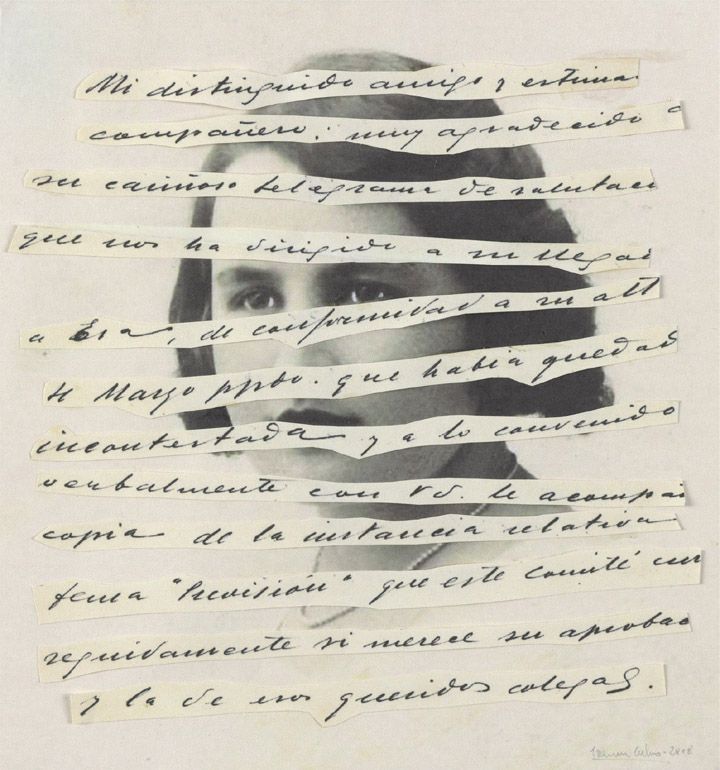 Mi distinguido amigo y estima
compañero: muy agradecido a
su cariñoso telegrama de salutaci
que nos ha dirigido a su llegad
a Esa, de conformidad a su att
4 Marzo ppdo. que había quedad
incontestada y a lo convenido
verbalmente con Vd. le acompañ
copia de la instancia relativa
tema "Previsión" que este Comité cur
seguidamente si merece su aprobac
y la de esos queridos colegas.
2018